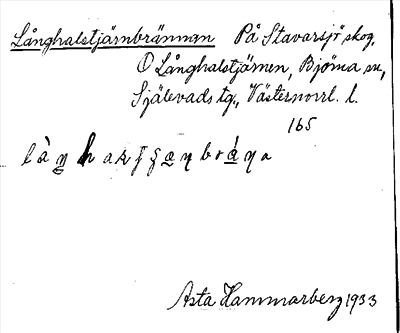 Långhalstjärnbrännan På Stavarsjö skog,
O Långhalstjärnen, Björna sn,
Själevads tg., Västernorrl. l.
165
Asta Hammarberg 1933